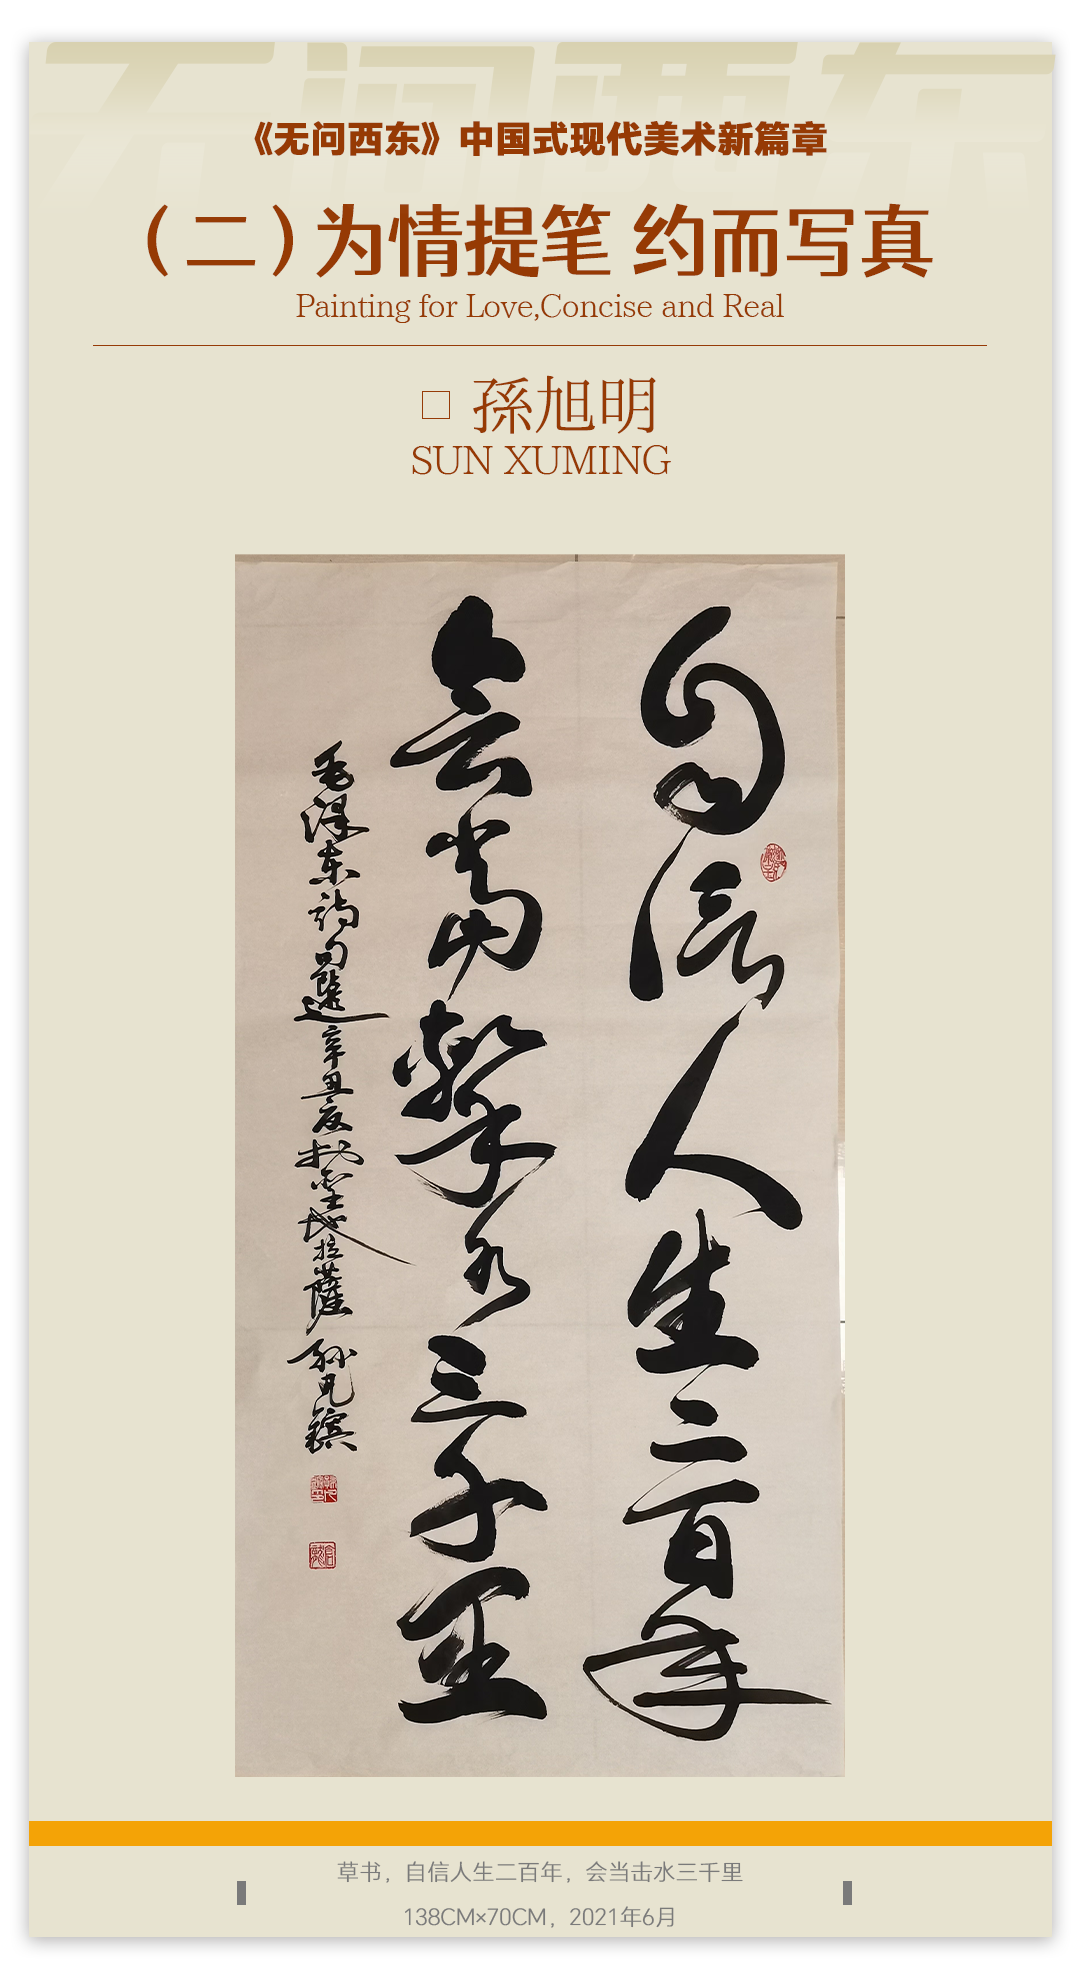 无问西东
《无问西东》中国式现代美术新篇章
（二）为情提笔 约而写真
Painting for Love,Concise and Real
□ 孫旭明
SUN XUMING
自信人生二百年
会当擊水三千里
毛泽东詩句選辛丑夏於聖地拉薩
草书，自信人生二百年，会当击水三千里
138CM×70CM，2021年6月